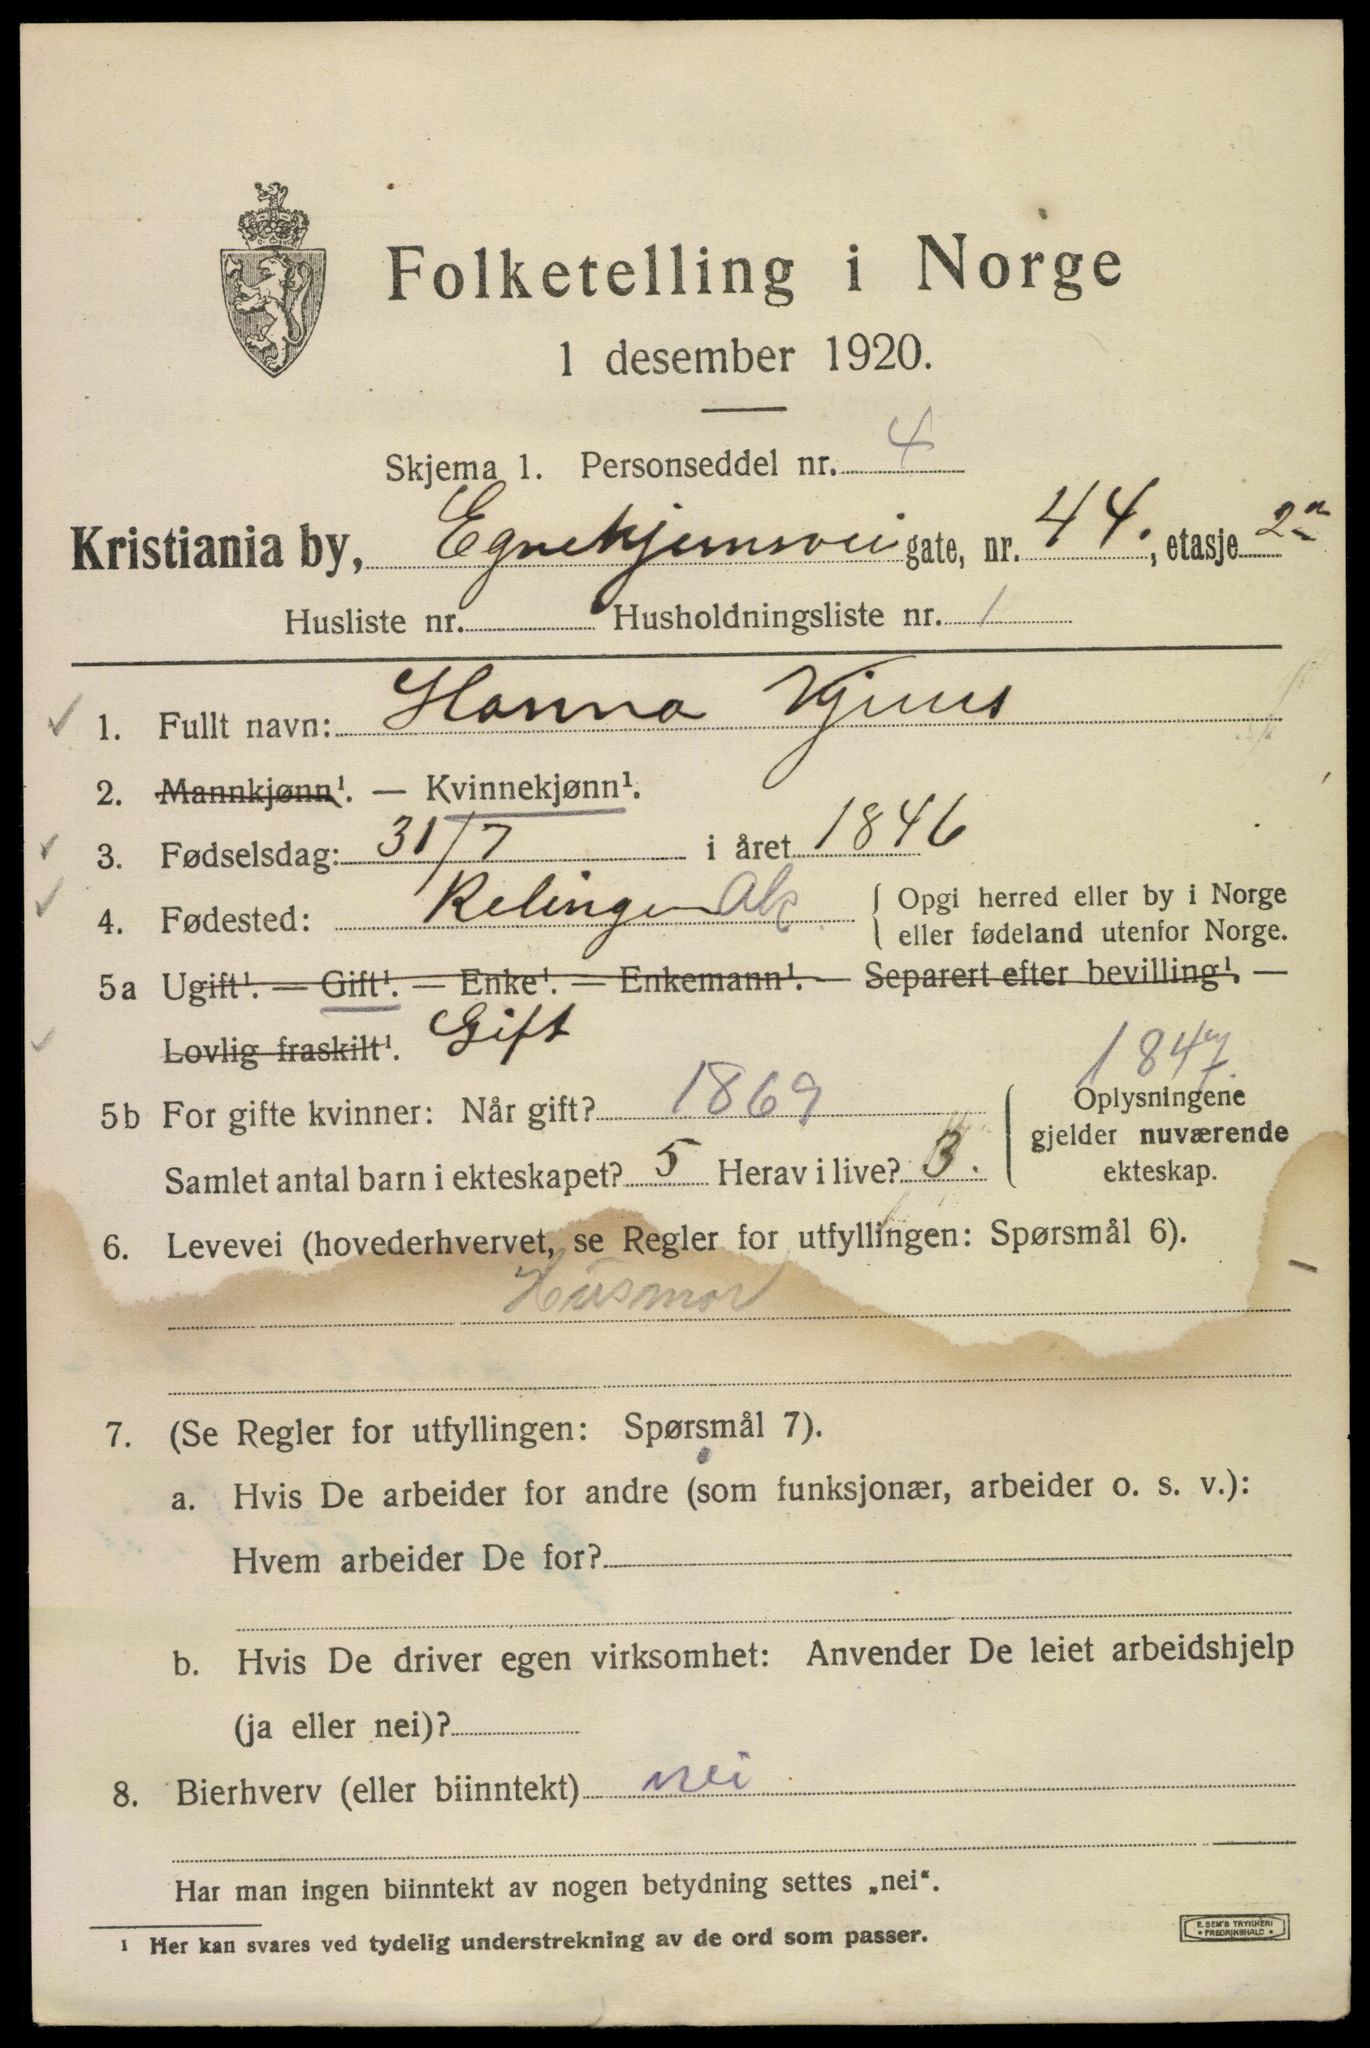 Folketelling i Norge
1 desember 1920.
Skjema 1. Personseddel nr. 4
Kristiania by, Egnehjemsvei gate, nr. 44. , etasje 2
Husliste nr. Husholdningsliste nr. 1
1. Fullt navn: Hanna
2. Mannkjønn¹. — Kvinnekjønn¹.
3. Fødselsdag: 31/7 i året 1846
4. Fødested: Relingen Ak. { Opgi herred eller by i Norge
eller fødeland utenfor Norge.
5a Ugift¹. — Gift¹. — Enke¹. — Enkemann¹. — Separert efter bevilling¹. —
Lovlig fraskilt¹. Gift
1847.
5b For gifte kvinner: Når gift? 1869 Oplysningene
gjelder nuværende
Samlet antal barn i ekteskapet? 5 Herav i live? 3. ekteskap.
6. Levevei (hovederhvervet, se Regler for utfyllingen: Spørsmål 6).
Husmor
7. (Se Regler for utfyllingen: Spørsmål 7).
a. Hvis De arbeider for andre (som funksjonær, arbeider o. s. v.):
Hvem arbeider De for?
b. Hvis De driver egen virksomhet: Anvender De leiet arbeidshjelp
(ja eller nei)?
8. Bierhverv (eller biinntekt) nei
Har man ingen biinntekt av nogen betydning settes „nei“.
¹ Her kan svares ved tydelig understrekning av de ord som passer.
E. SEM'S TRYKKERI
* FREDRIKSHALD *